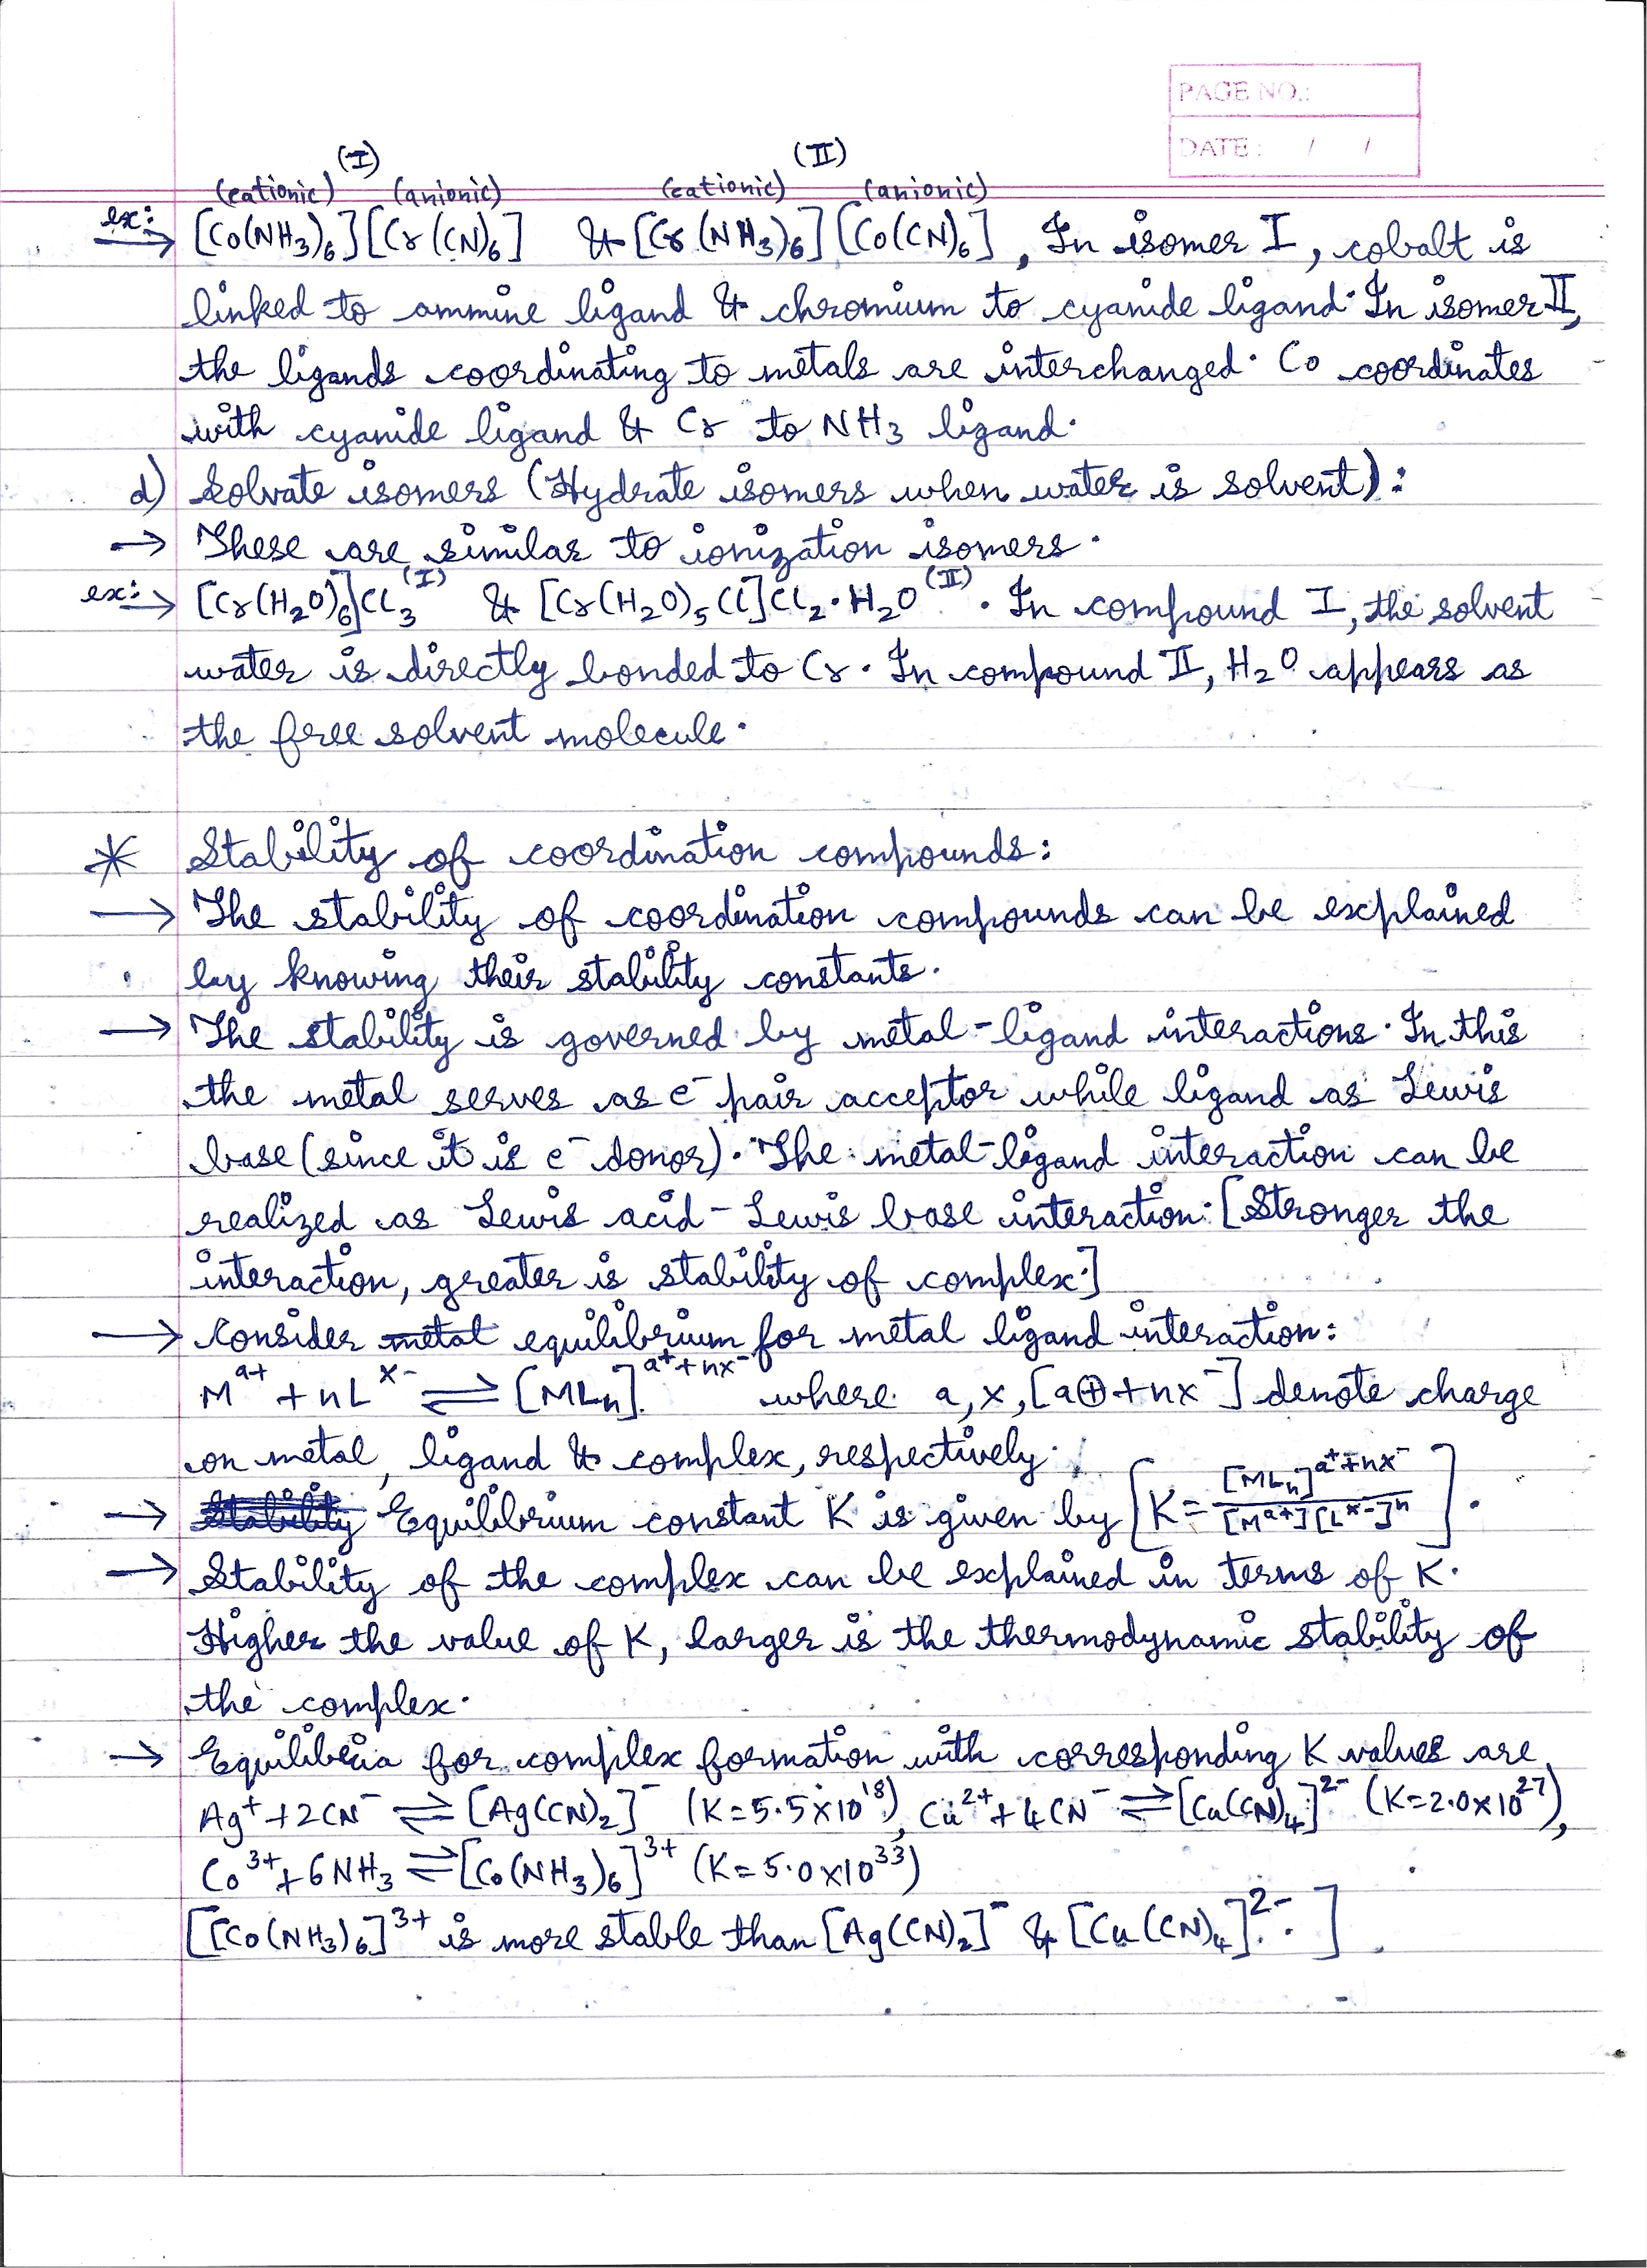 PAGE NO.:
DATE: / /
(I) (II)
(cationic) (anionic) (cationic) (anionic)
ex: → [Co(NH₃)₆][Cr(CN)₆] & [Cr(NH₃)₆][Co(CN)₆], In isomer I, cobalt is
linked to ammine ligand & chromium to cyanide ligand. In isomer II,
the ligands coordinating to metals are interchanged. Co coordinates
with cyanide ligand & Cr to NH₃ ligand.
d) Solvate isomers (Hydrate isomers when water is solvent):
→ These are similar to ionization isomers.
ex: → [Cr(H₂O)₆]Cl₃ (I) & [Cr(H₂O)₅Cl]Cl₂·H₂O (II). In compound I, the solvent
water is directly bonded to Cr. In compound II, H₂O appears as
the free solvent molecule.
* Stability of coordination compounds:
→ The stability of coordination compounds can be explained
by knowing their stability constants.
→ The stability is governed by metal-ligand interactions. In this
the metal serves as e⁻ pair acceptor while ligand as Lewis
base (since it is e⁻ donor). The metal-ligand interaction can be
realized as Lewis acid - Lewis base interaction. [Stronger the
interaction, greater is stability of complex.]
→ Consider metal equilibrium for metal ligand interaction:
Mᵃ⁺ + nLˣ⁻ ⇌ [MLₙ]ᵃ⁺⁺ⁿˣ⁻ where a, x, [a⊕+nx⁻] denote charge
on metal, ligand & complex, respectively.
→ Stability Equilibrium constant K is given by [K = [MLₙ]ᵃ⁺⁺ⁿˣ⁻ / [Mᵃ⁺][Lˣ⁻]ⁿ].
→ Stability of the complex can be explained in terms of K.
Higher the value of K, larger is the thermodynamic stability of
the complex.
→ Equilibria for complex formation with corresponding K values are
Ag⁺ + 2CN⁻ ⇌ [Ag(CN)₂]⁻ (K = 5.5×10¹⁸), Cu²⁺ + 4CN⁻ ⇌ [Cu(CN)₄]²⁻ (K = 2.0×10²⁷),
Co³⁺ + 6NH₃ ⇌ [Co(NH₃)₆]³⁺ (K = 5.0×10³³)
[[Co(NH₃)₆]³⁺ is more stable than [Ag(CN)₂]⁻ & [Cu(CN)₄]²⁻.]